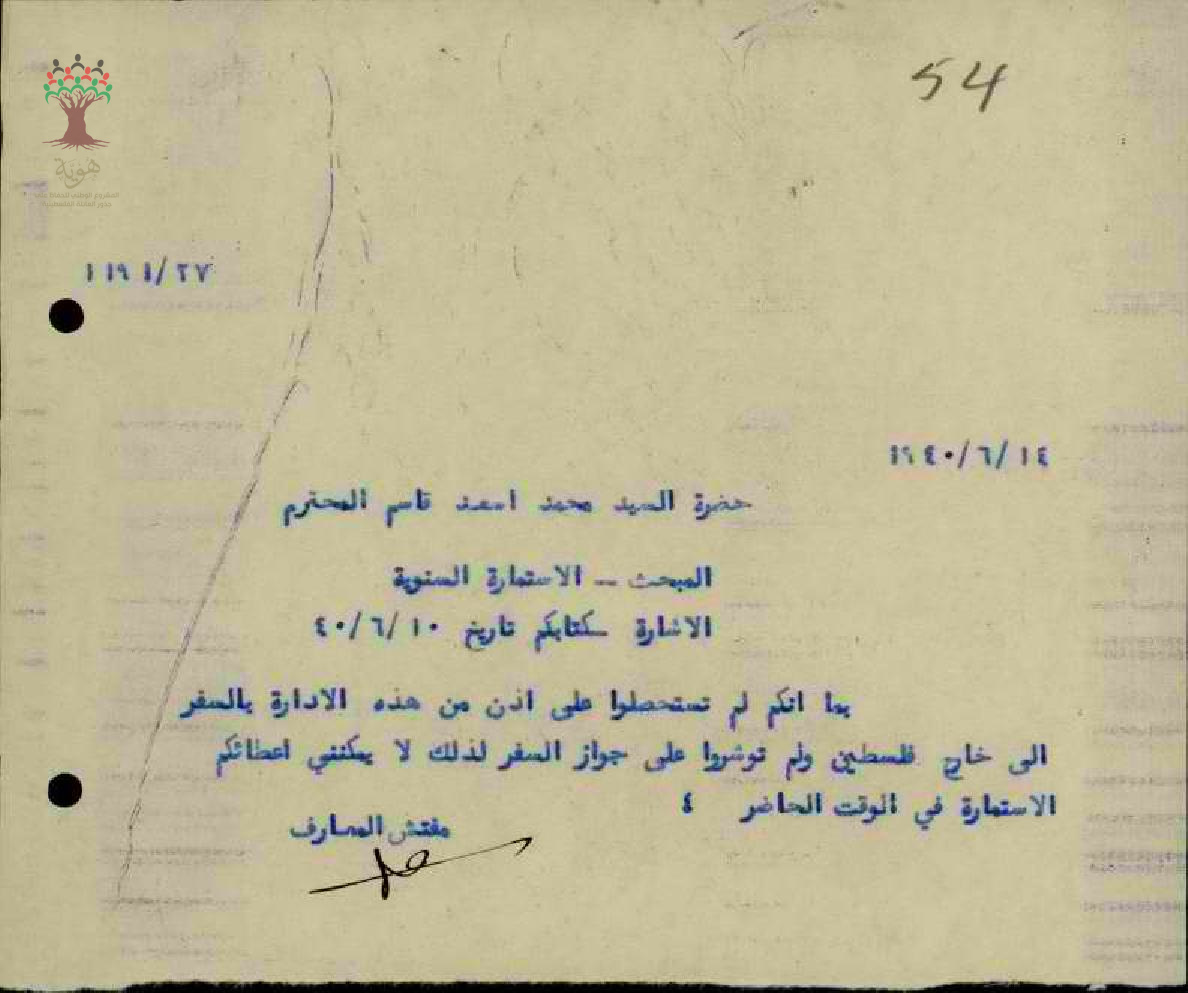 54
هوية
١١٩١/٢٧
١٩٤٠/٦/١٤
حضرة السيد محمد اسعد قاسم المحترم
المبحث – الاستمارة السنوية
الاشارة كتابكم تاريخ ٤٠/٦/١٠
بما انكم لم تستحصلوا على اذن من هذه الادارة بالسفر
الى خارج فلسطين ولم توشروا على جواز السفر لذلك لا يمكنني اعطائكم
الاستمارة في الوقت الحاضر ٤
مفتش المعارف